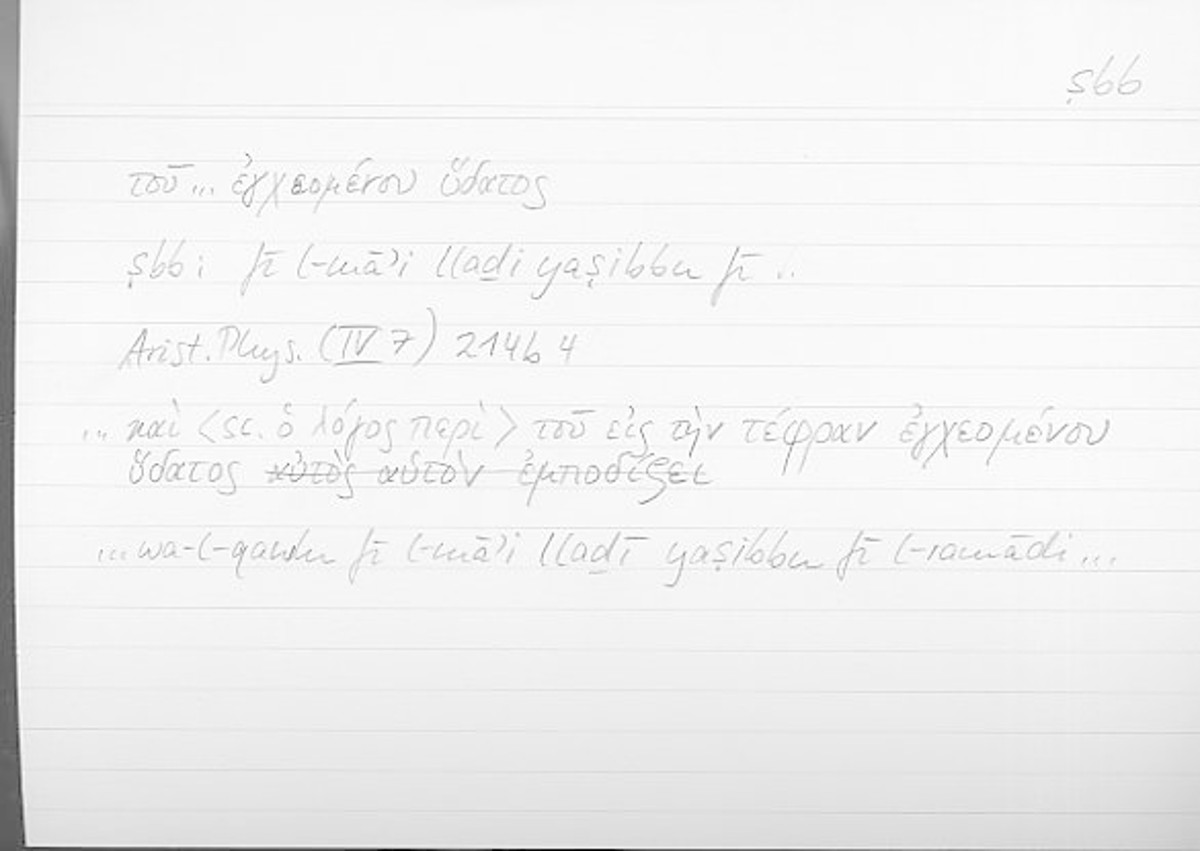 ṣbb
τοῦ ... ἐγχεομένου ὕδατος
ṣbb: fī l-māʾi lladi yaṣibbu fī ..
Arist. Phys. (IV 7) 214b 4
... καὶ <sc. ὁ λόγος περὶ> τοῦ εἰς τὴν τέφραν ἐγχεομένου
ὕδατος αὐτὸς αὑτὸν ἐμποδίζει
... wa-l-qawlu fī l-māʾi lladī yaṣibbu fī l-ramādi ...